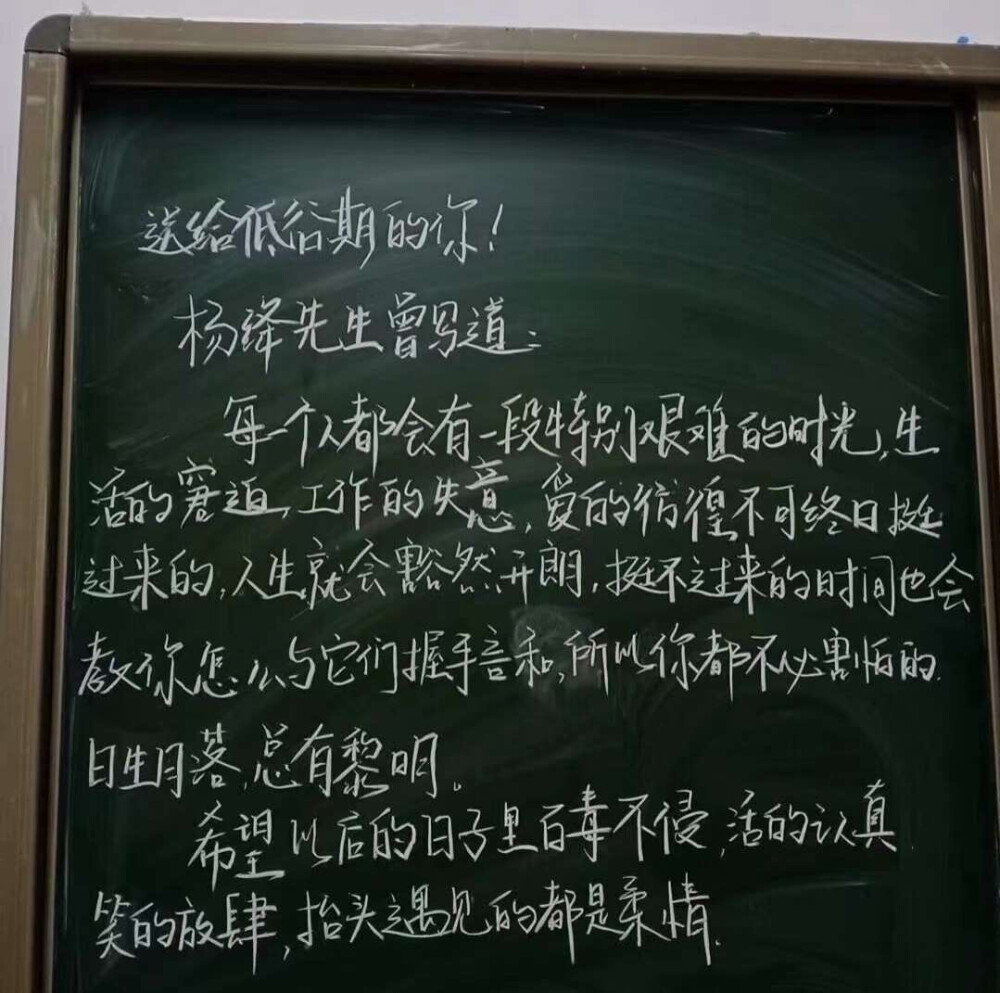 送给低谷期的你!
杨绛先生曾写道:
每一个人都会有一段特别艰难的时光,生
活的窘迫,工作的失意,爱的彷徨不可终日挺
过来的,人生就会豁然开朗,挺不过来的时间也会
教你怎么与它们握手言和,所以你都不必害怕的.
日生月落,总有黎明。
希望以后的日子里百毒不侵,活的认真
笑的放肆,抬头遇见的都是柔情.